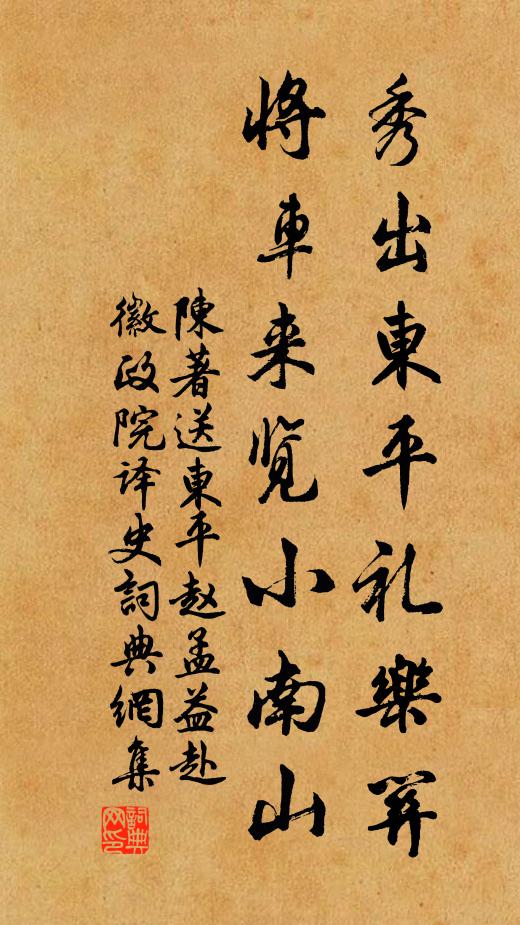 秀出東平礼樂關
将車来览小南山
陳著送東平赵孟益赴
徽政院译史詞典網集
詞典网印